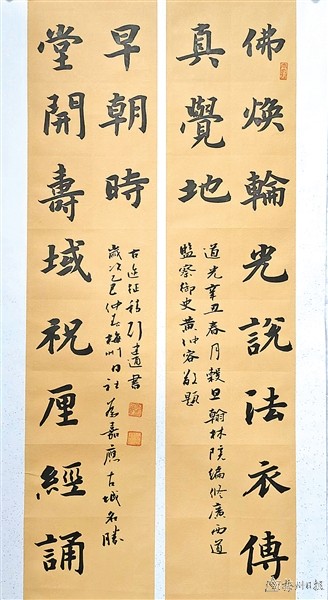 佛煥輪光說法衣傳
真覺地
道光辛丑春月穀旦翰林院編修廣西道
監察御史黃仲容敬題
堂開壽域祝厘經誦
早朝時
歲次乙巳仲春梅州日社為嘉應古城名勝
古迹征稿 書
梅州日报